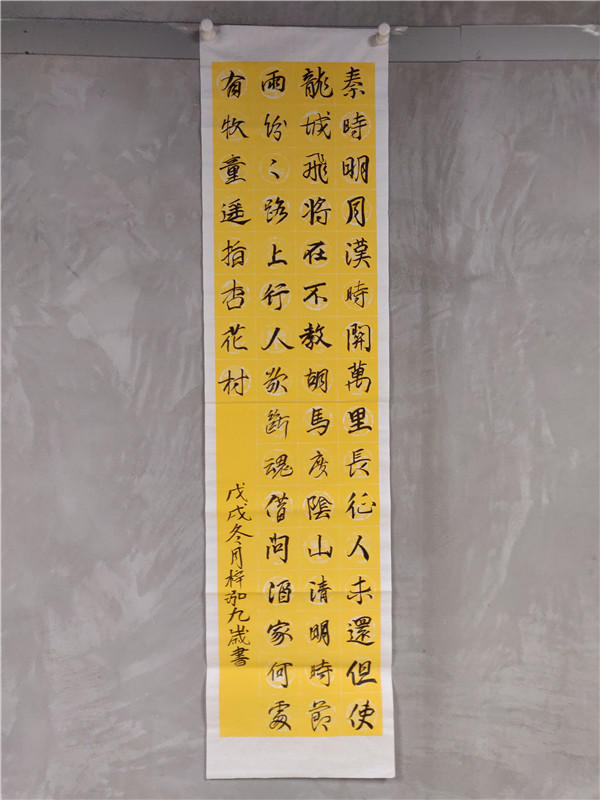 秦時明月漢時關萬里長征人未還但使
龍城飛将在不教胡馬度陰山清明時節
雨紛〻路上行人欲斷魂借問酒家何處
有牧童遥指杏花村
戊戌冬月梓泓九歲書